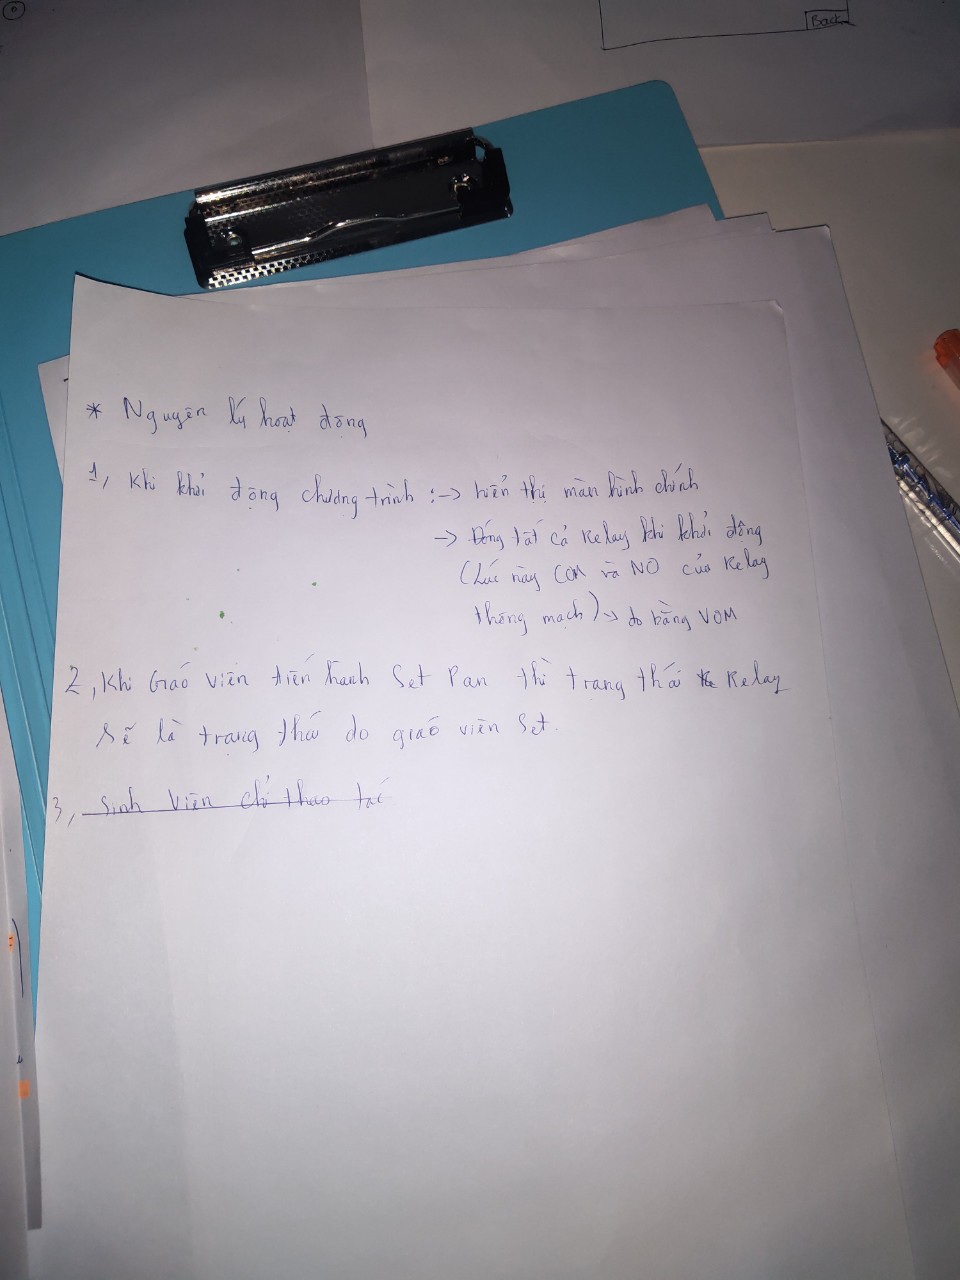 Back
* Nguyên lý hoạt động
1, Khi khởi động chương trình :-> hiển thị màn hình chính
-> Đóng tất cả Relay khi khởi động
(Lúc này COM và NO của Relay
thông mạch) -> đo bằng VOM
2, Khi Giáo viên tiến hành Set Pan thì trạng thái Relay
sẽ là trạng thái do giáo viên set.
3, Sinh viên chỉ thao tác